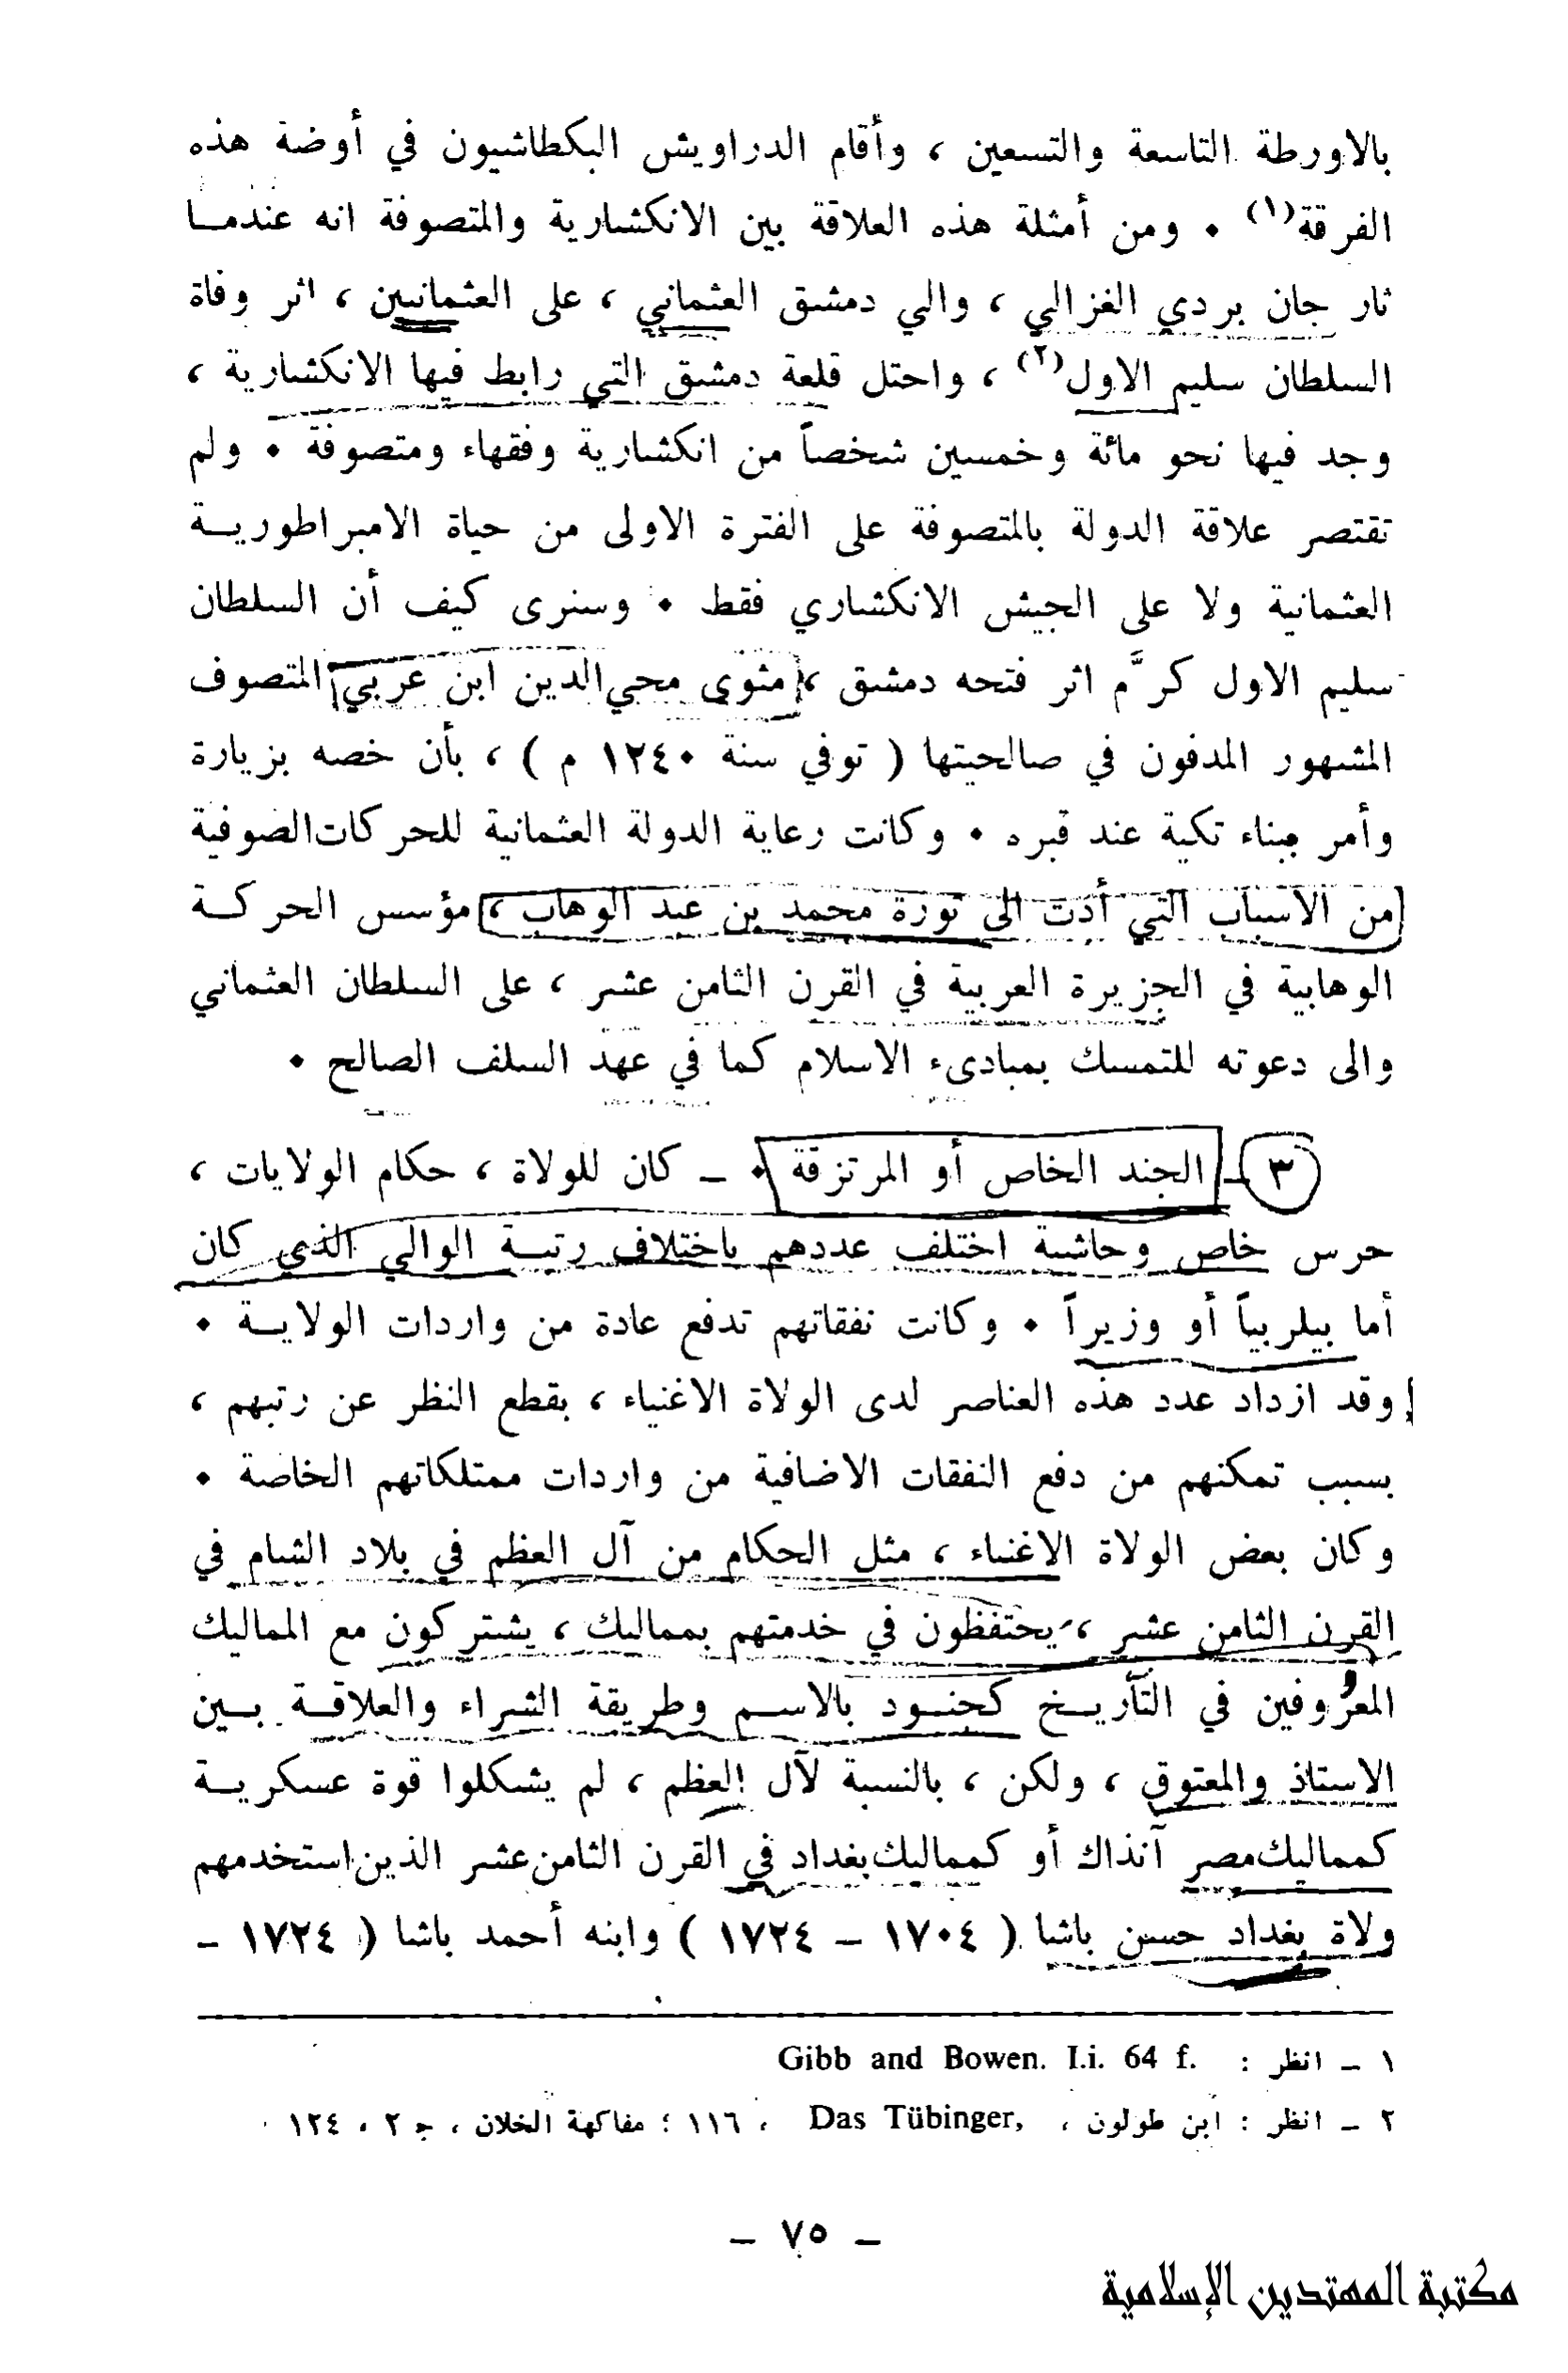 بالاورطة التاسعة والتسعين ، وأقام الدراويش البكطاشيون في أوضة هذه
الفرقة(١) . ومن أمثلة هذه العلاقة بين الانكشارية والمتصوفة انه عندمـا
ثار جان بردي الغزالي ، والي دمشق العثماني ، على العثمانيين ، اثر وفاة
السلطان سليم الاول(٢) ، واحتل قلعة دمشق التي رابط فيها الانكشارية ،
وجد فيها نحو مائة وخمسين شخصاً من انكشارية وفقهاء ومتصوفة . ولم
تقتصر علاقة الدولة بالمتصوفة على الفترة الاولى من حياة الامبراطوريـة
العثمانية ولا على الجيش الانكشاري فقط . وسنرى كيف أن السلطان
سليم الاول كرَّم اثر فتحه دمشق ، مثوى محي الدين ابن عربي المتصوف
المشهور المدفون في صالحيتها ( توفي سنة ١٢٤٠ م ) ، بأن خصه بزيارة
وأمر ببناء تكية عند قبره . وكانت رعاية الدولة العثمانية للحركات الصوفية
من الاسباب التي أدت الى ثورة محمد بن عبد الوهاب ، مؤسس الحركـة
الوهابية في الجزيرة العربية في القرن الثامن عشر ، على السلطان العثماني
والى دعوته للتمسك بمبادىء الاسلام كما في عهد السلف الصالح .
٣ ـ الجند الخاص أو المرتزقة . ـ كان للولاة ، حكام الولايات ،
حرس خاص وحاشية اختلف عددهم باختلاف رتبـة الوالي الذي كان
أما بيلربياً أو وزيراً . وكانت نفقاتهم تدفع عادة من واردات الولايـة .
وقد ازداد عدد هذه العناصر لدى الولاة الاغنياء ، بقطع النظر عن رتبهم ،
بسبب تمكنهم من دفع النفقات الاضافية من واردات ممتلكاتهم الخاصة .
وكان بعض الولاة الاغنياء ، مثل الحكام من آل العظم في بلاد الشام في
القرن الثامن عشر ، يحتفظون في خدمتهم بمماليك ، يشتركون مع المماليك
المعروفين في التأريـخ كجنـود بالاسـم وطريقة الشراء والعلاقـة بـين
الاستاذ والمعتوق ، ولكن ، بالنسبة لآل العظم ، لم يشكلوا قوة عسكريـة
كمماليك مصر آنذاك أو كمماليك بغداد في القرن الثامن عشر الذين استخدمهم
ولاة بغداد حسن باشا ( ١٧٠٤ ـ ١٧٢٤ ) وابنه أحمد باشا ( ١٧٢٤ ـ
١ ـ انظر : Gibb and Bowen. I.i. 64 f.
٢ ـ انظر : ابن طولون ، Das Tübinger, ، ١١٦ ؛ مفاكهة الخلان ، جـ ٢ ، ١٢٤
ـ ٧٥ ـ
مكتبة المهتدين الإسلامية